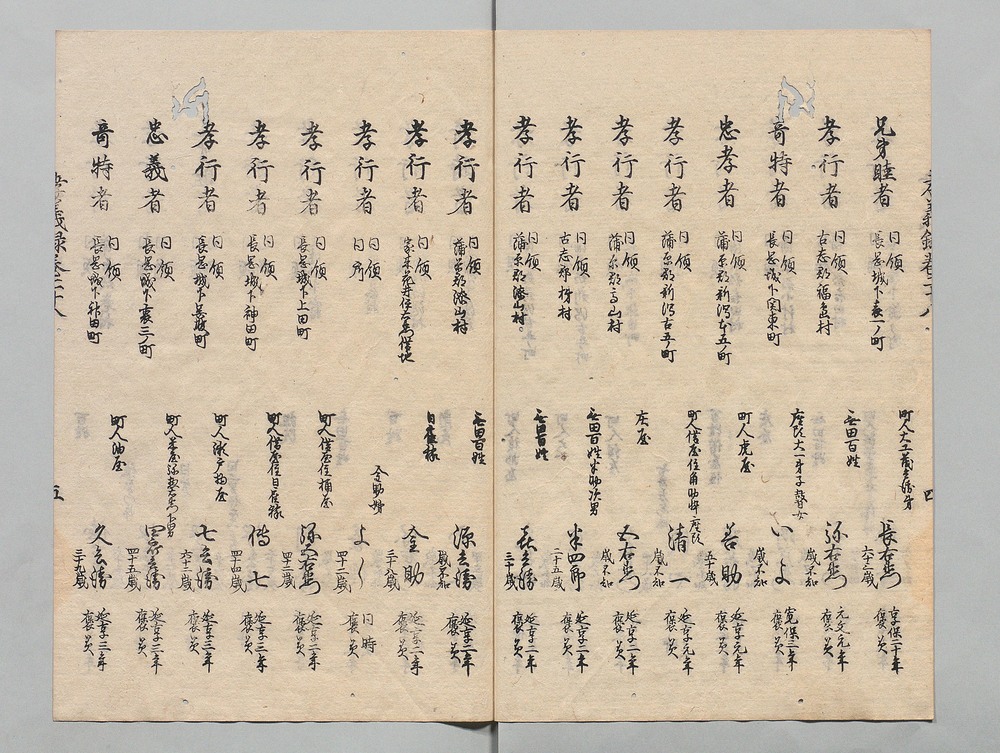 兄弟睦者 同領 長岡城下表一ノ町 町人大工蔵兵衛弟 長右衛門 六十二歳 享保二十年 褒美
孝行者 同領 古志郡福島村 無田百姓 弥右衛門 歳不知 元文元年 褒美
奇特者 同領 長岡城下関東町 座頭大一弟子瞽女 いよ 歳不知 寛保二年 褒美
忠孝者 同領 蒲原郡新潟本五ノ町 町人虎屋 善助 五十歳 延享元年 褒美
孝行者 同領 蒲原郡新潟古五ノ町 町人借屋住角助悴座頭 清一 歳不知 延享元年 褒美
孝行者 同領 蒲原郡高山村 庄屋 又右衛門 歳不知 延享二年 褒美
孝行者 同領 古志郡村 無田百姓半助次男 半四郎 二十五歳 延享二年 褒美
孝行者 同領 蒲原郡漆山村 無田百姓 喜兵衛 三十歳 延享二年 褒美
四
孝行者 同領 蒲原郡漆山村 無田百姓 源兵衛 歳不知 延享二年 褒美
孝行者 同領 家来花井住六左衛門借地 日雇稼 金助 三十六歳 延享二年 褒美
孝行者 同領 同所 金助娘 よし 四十二歳 同時 褒美
孝行者 同領 長岡城下上田町 町人借屋住桶屋 弥五右衛門 四十二歳 延享三年 褒美
孝行者 同領 長岡城下神田町 町人借屋住日雇稼 傳七 四十四歳 延享三年 褒美
孝行者 同領 長岡城下呉服町 町人瀬戸物屋 七兵衛 六十二歳 延享三年 褒美
忠義者 同領 長岡城下裏三ノ町 町人米屋弥惣右衛門下男 四郎兵衛 四十五歳 延享三年 褒美
奇特者 同領 長岡城下神田町 町人油屋 久兵衛 三十九歳 延享三年 褒美
孝義録巻二十八 五